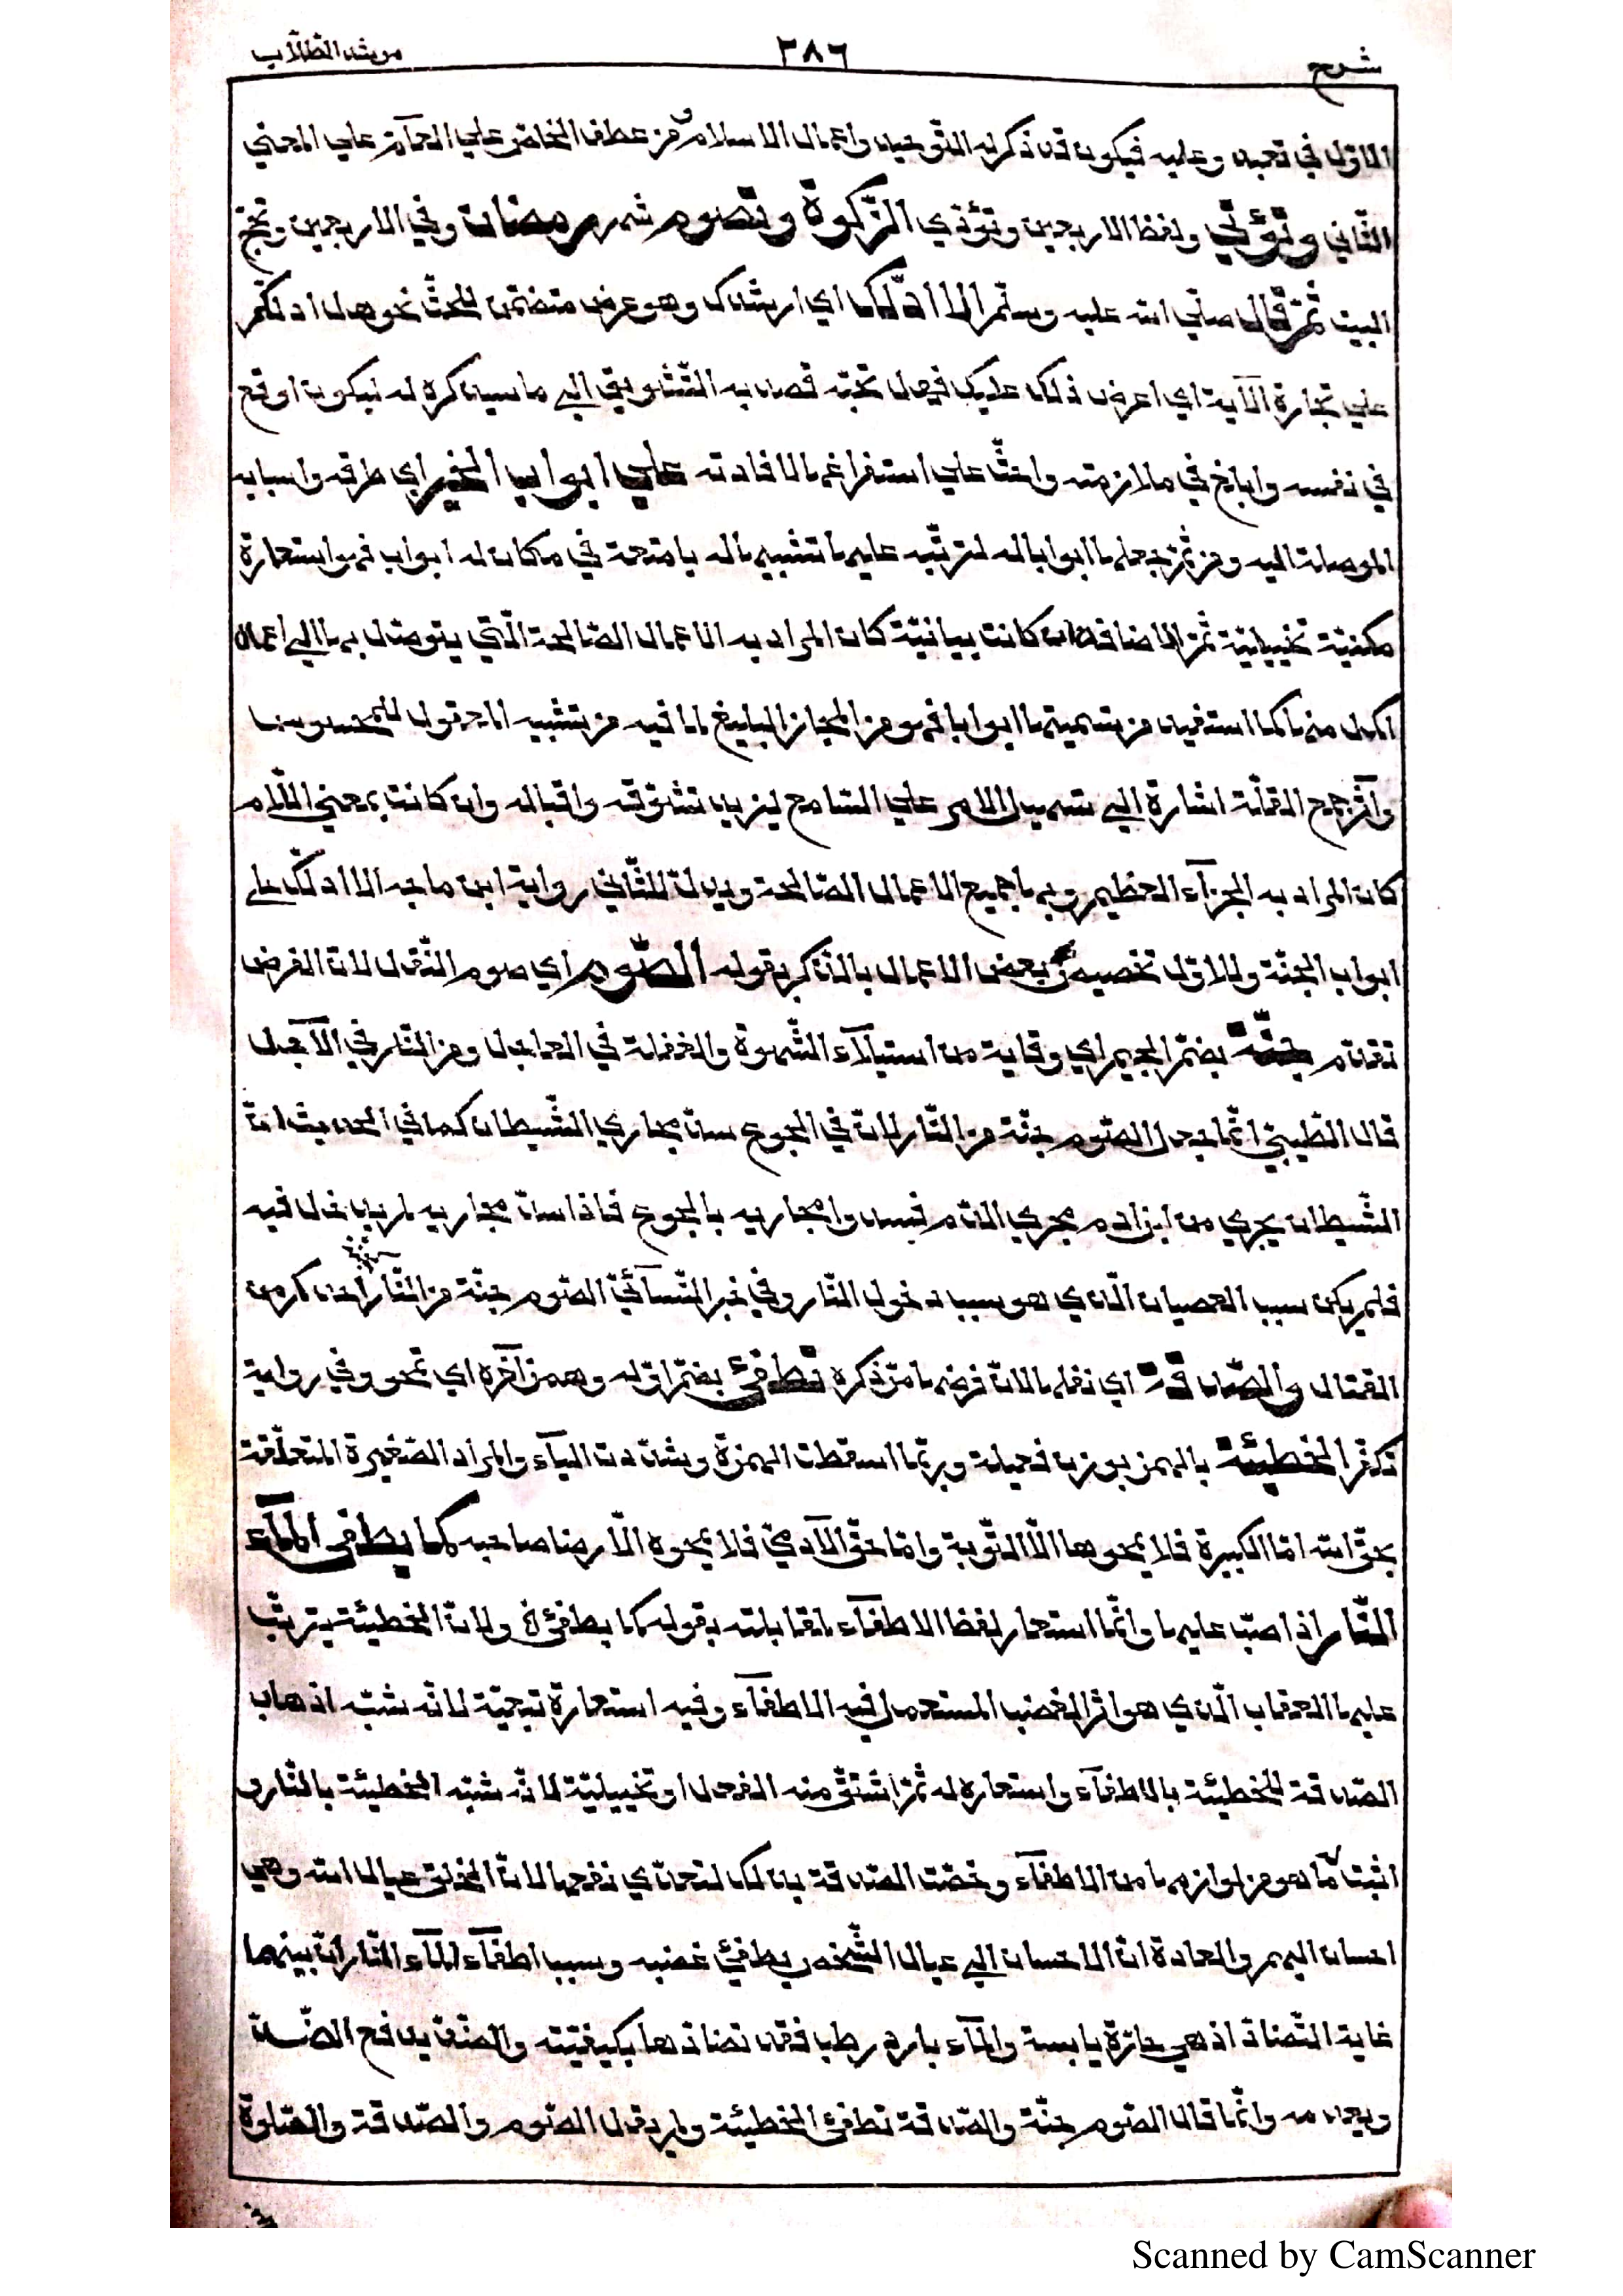 شرح ٣٨٦ مرشد الطلّاب
الاوّل في تعبد وعليه فيكون قد ذكر له التّوحيد واعمال الاسلام من عطف الخاصّ علي العآمّ علي المعني
الثّاني وتؤتي ولفظ الاربعين وتؤدّي الزّكوة وتصوم شهر رمضان وفي الاربعين وتحجّ
البيت ثمّ قال صلّي الله عليه وسلّم الا ادلّك اي ارشدك وهو عرض متضمّن للحثّ نحو هل ادلّكم
علي تجارة الآية اي اعرض ذلك عليك فهل تحبّه قصد به التّشويق الي ما سيذكره له ليكون اوقع
في نفسه وابلغ في ملازمته واحثّ علي استفراغها لافادته علي ابواب الخير اي طرقه واسبابه
الموصلة اليه ومن ثمّ جعلها ابوابا له لترتّبه عليها تشبيها له بامتعة في مكان له ابواب فهو استعارة
مكنيّة تخييليّة ثمّ الاضافة ان كانت بيانيّة كان المراد به الاعمال الصّالحة الّتي يتوصّل بها الي اعمال
اكمل منها كما استفيد من تسميتها ابوابا فهو من المجاز البليغ لما فيه من تشبيه المعقول بالمحسوس
وآثر جمع القلّة اشارة الي تسهيل الامر علي السّامع ليزيد تشوّقه واقباله وان كانت بمعني اللّام
كان المراد به الجزآء العظيم وبها جميع الاعمال الصّالحة ويدلّ للثّاني رواية ابن ماجه الا ادلّك علي
ابواب الجنّة وللاوّل تخصيصه بعض الاعمال بالذّكر بقوله الصّوم اي صوم النّفل لانّ الفرض
تقدّم جنّة بضمّ الجيم اي وقاية من استيلآء الشّهوة والغفلة في العاجل ومن النّار في الآجل
قال الطّيبيّ انّما جعل الصّوم جنّة من النّار لانّ في الجوع سدّ مجاري الشّيطان كما في الحديث انّ
الشّيطان يجري من ابن آدم مجري الدّم فسدّوا مجاريه بالجوع فاذا سدّ مجاريه لم يدخل فيه
فلم يكن سبب العصيان الّذي هو سبب دخول النّار وفي خبر النّسآئيّ الصّوم جنّة من النّار احدكم من
القتال والصّدقة اي نفلها لانّ فرضها مرّ ذكره تطفئ بضمّ اوّله وهمز آخره اي تمحو وفي رواية
تكفّر الخطيئة بالهمز بوزن فعيلة وربّما اسقطت الهمزة وشدّدت اليآء والمراد الصّغيرة المتعلّقة
بحقّ الله امّا الكبيرة فلا يمحوها الّا التّوبة وامّا حقّ الآدميّ فلا يمحوه الّا رضا صاحبه كما يطفئ المآء
النّار اذا صبّ عليها وانّما استعار لفظ الاطفآء لمقابلته بقوله كما يطفئ الخ ولانّ الخطيئة يترتّب
عليها العقاب الّذي هو اثر الغضب المستعمل فيه الاطفآء وفيه استعارة تبعيّة لانّه شبّه اذهاب
الصّدقة للخطيئة بالاطفآء واستعاره له ثمّ اشتقّ منه الفعل او تخييليّة لانّه شبّه الخطيئة بالنّار و
اثبت لها ما هو من لوازمها من الاطفآء وخصّت الصّدقة بذلك لتعدّي نفعها لانّ الخلق عيال الله وهي
احسان اليهم والعادة انّ الاحسان الي عيال الشّخص يطفئ غضبه وسبب اطفآء المآء النّار انّ بينهما
غاية التّضادّ اذ هي حارّة يابسة والمآء بارد رطب فقد تضادّها بكيفيّته والضّدّ يدفع الضّدّ
ويعدمه وانّما قال الصّوم جنّة والصّدقة تطفئ الخطيئة ولم يقل الصّوم والصّدقة والصّلوة
Scanned by CamScanner